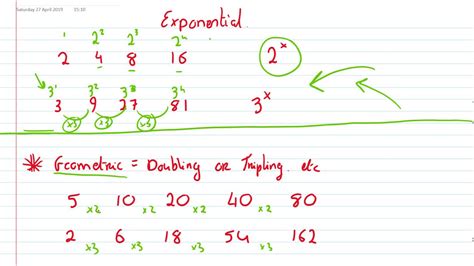 Saturday 27 April 2019 15:10
Exponential.
1 2² 2³ 2⁴
2 4 8 16 2ˣ
3¹ 3² 3³ 3⁴
3 9 27 81 3ˣ
x3 x3 x3
* Geometric = Doubling or Tripling. etc
5 x2 10 x2 20 x2 40 x2 80
2 x3 6 x3 18 x3 54 x3 162